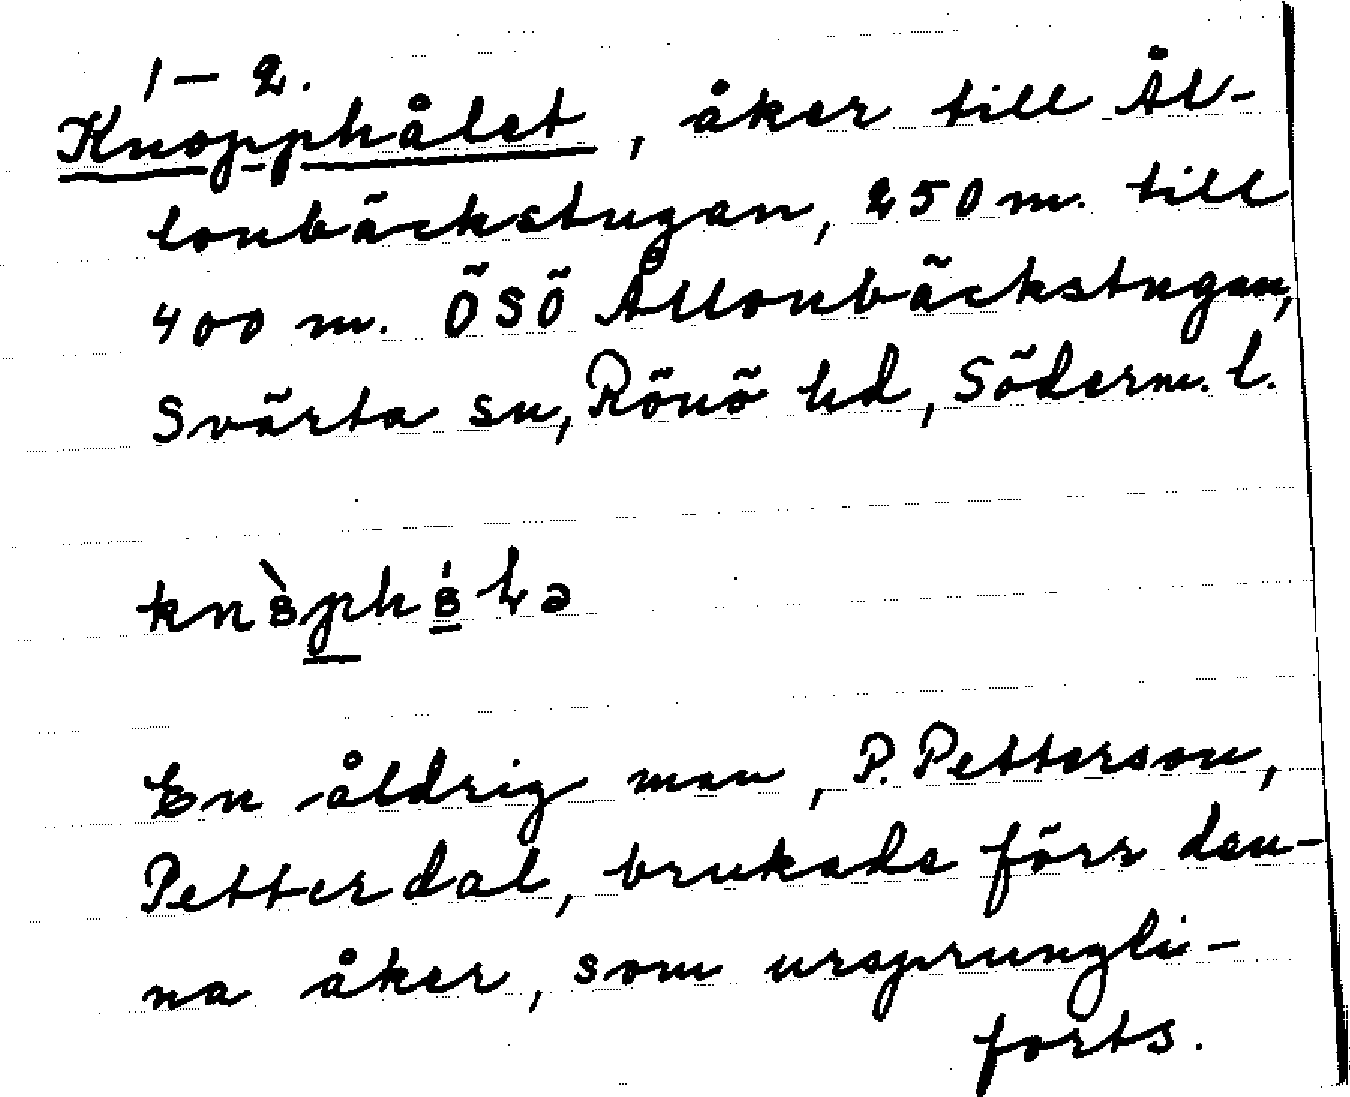 1–2.
Knopphålet, åker till Ål-
lonbäckstugan, 250 m. till
400 m. ÖSÖ Ållonbäckstugan,
Svärta sn, Rönö hd, Söderm. l.
En åldrig man, P. Petterson,
Petterdal, brukade förr den-
na åker, som ursprungli-
forts.